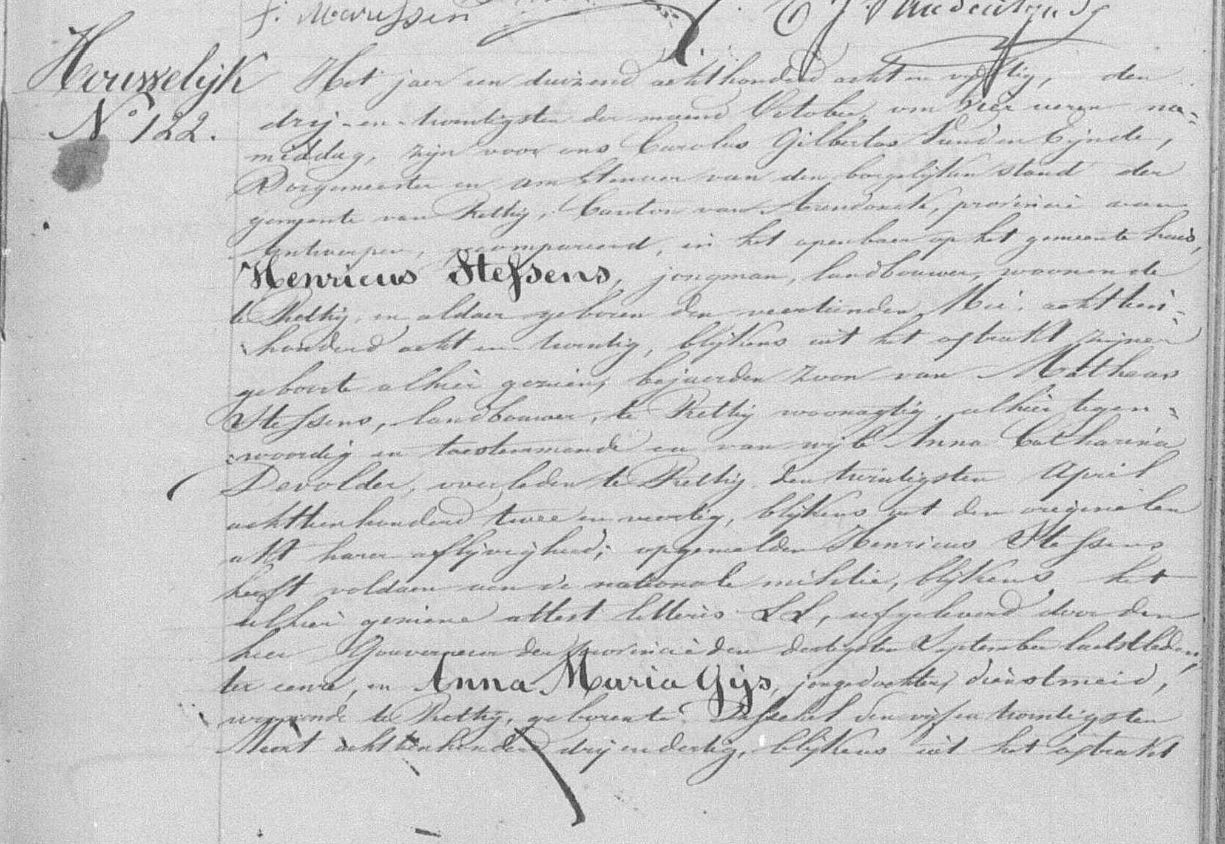 J. Marissen
Houwelijk
N° 122.
Het jaer een duizend achthonderd acht en vyftig, den
drij-en-twintigsten der maend October, om vier uren na=
middag, zijn voor ons Carolus Gilbertus Vanden Eijnde,
Borgemeester en ambtenaer van den borgelijken stand der
gemeente van Rethij, Canton van Arendonck, provincie van
Antwerpen, gecompareerd, in het openbaer op het gemeente huis,
Henricus Stessens, jongman, landbouwer, woonende
te Rethij, en aldaer geboren den veertienden Mei, achttien=
=honderd acht en twintig, blijkens uit het afstrakt zijner
geboorte alhier gezien, bejaerden zoon van Matheus
Stessens, landbouwer, te Rethij woonagtig, alhier tegen=
=woordig en toestemmende en van wijle Anna Catharina
Devolder, overleden te Rethij den twintigsten April
achttienhonderd twee en veertig, blijkens uit den originelen
akt harer aflijvigheid; opgemelden Henricus Stessens
heeft voldaen aen de nationale militie, blijkens het
alhier geziene attest litteris LL, afgeleverd door den
heer Gouverneur der provincie den dertigsten September laetstleden,
ter eenre, en Anna Maria Gijs, jongedochter, dienstmeid,
woonende te Rethij, geboren te Desschel den vijf en twintigsten
Meert achttienhonderd drij en dertig, blijkens uit het afstrakt